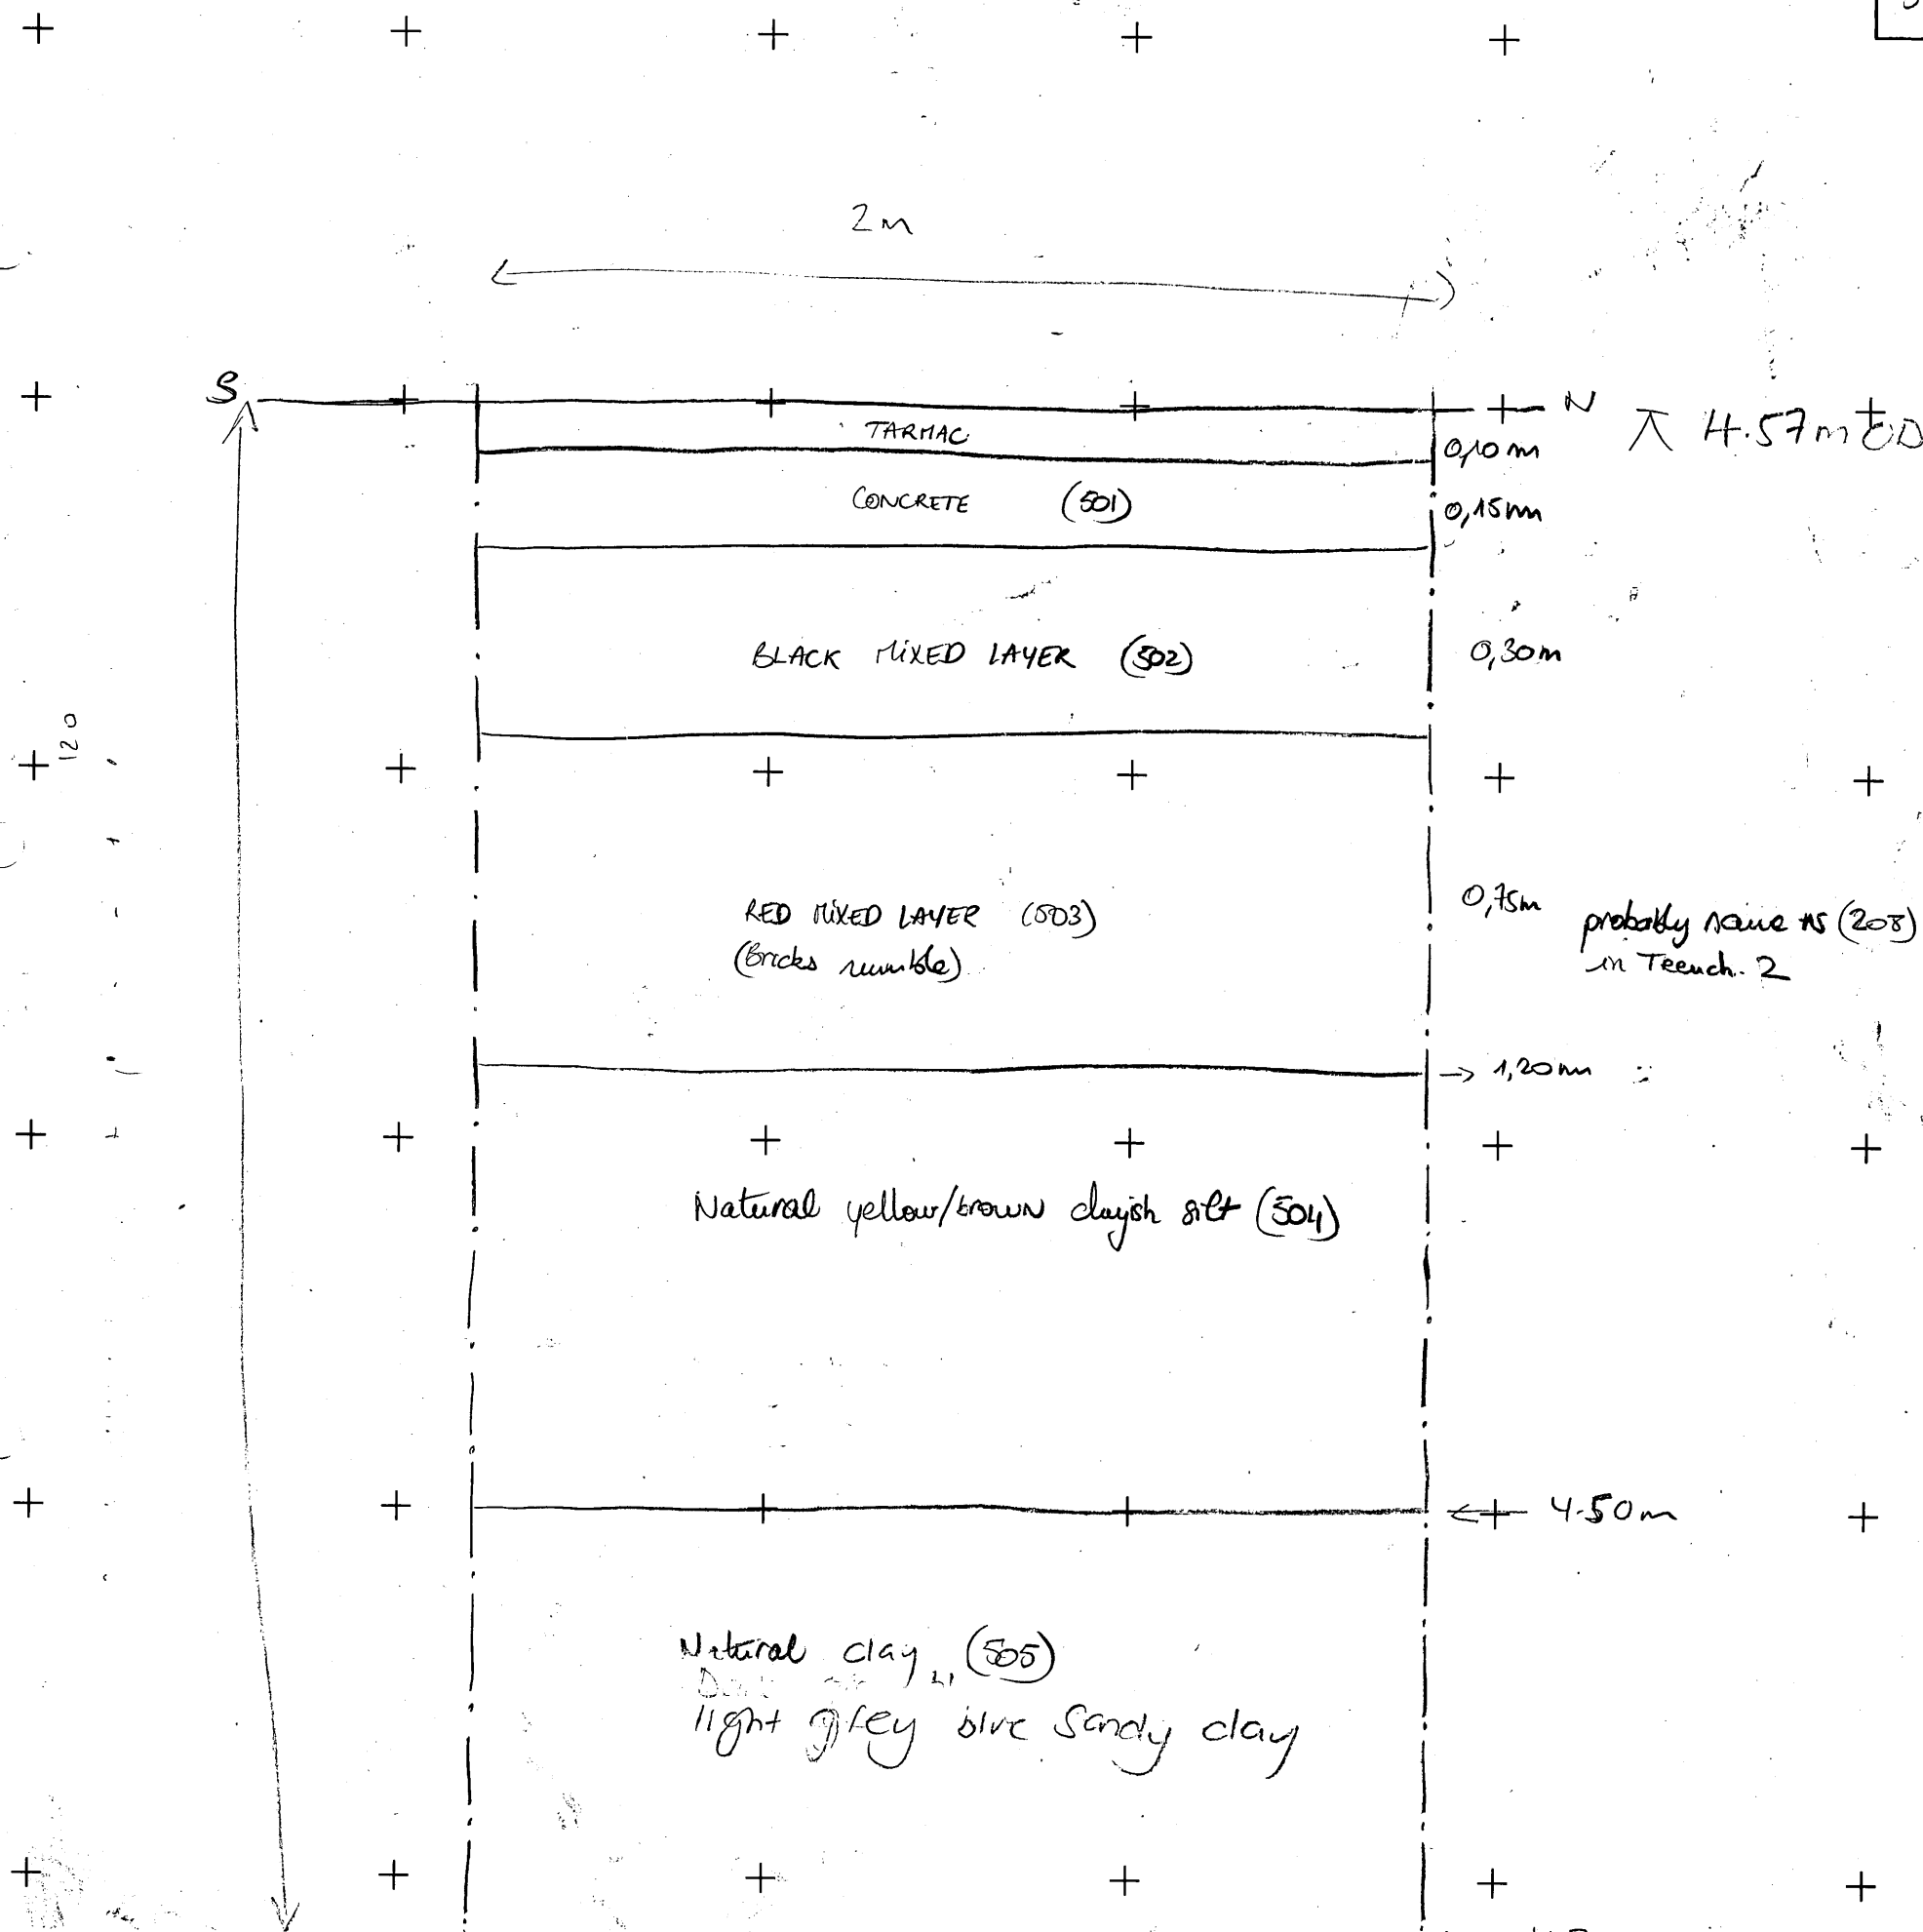 2m
S
N
4.57m OD
TARMAC
0,10m
CONCRETE (501)
0,15m
BLACK MIXED LAYER (502)
0,30m
120
RED MIXED LAYER (503)
(Bricks rumble)
0,75m
probably same as (203)
in Trench 2
1,20m
Natural yellow/brown clayish silt (504)
4.50m
Natural clay (505)
light grey blue Sandy clay